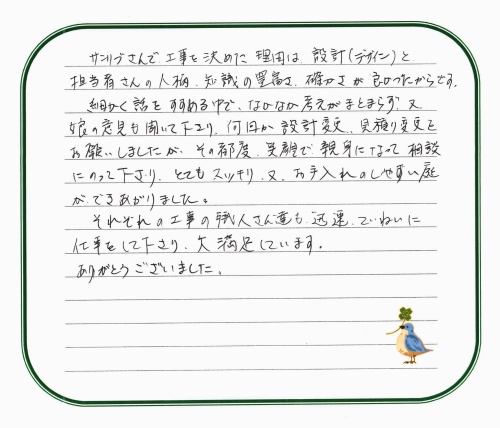 サンリブさんで工事を決めた理由は設計(デザイン)と
担当者さんの人柄、知識の豊富さ、確かさが良かったからです。
細かく話をすすめる中で、なかなか考えがまとまらず、又
娘の意見も聞いて下さり、何回か設計変更、見積り変更を
お願いしましたが、その都度、笑顔で親身になって相談
にのって下さり、とてもスッキリ、又、お手入れのしやすい庭
ができあがりました。
それぞれの工事の職人さん達も迅速、ていねいに
仕事をして下さり、大満足しています。
ありがとうございました。